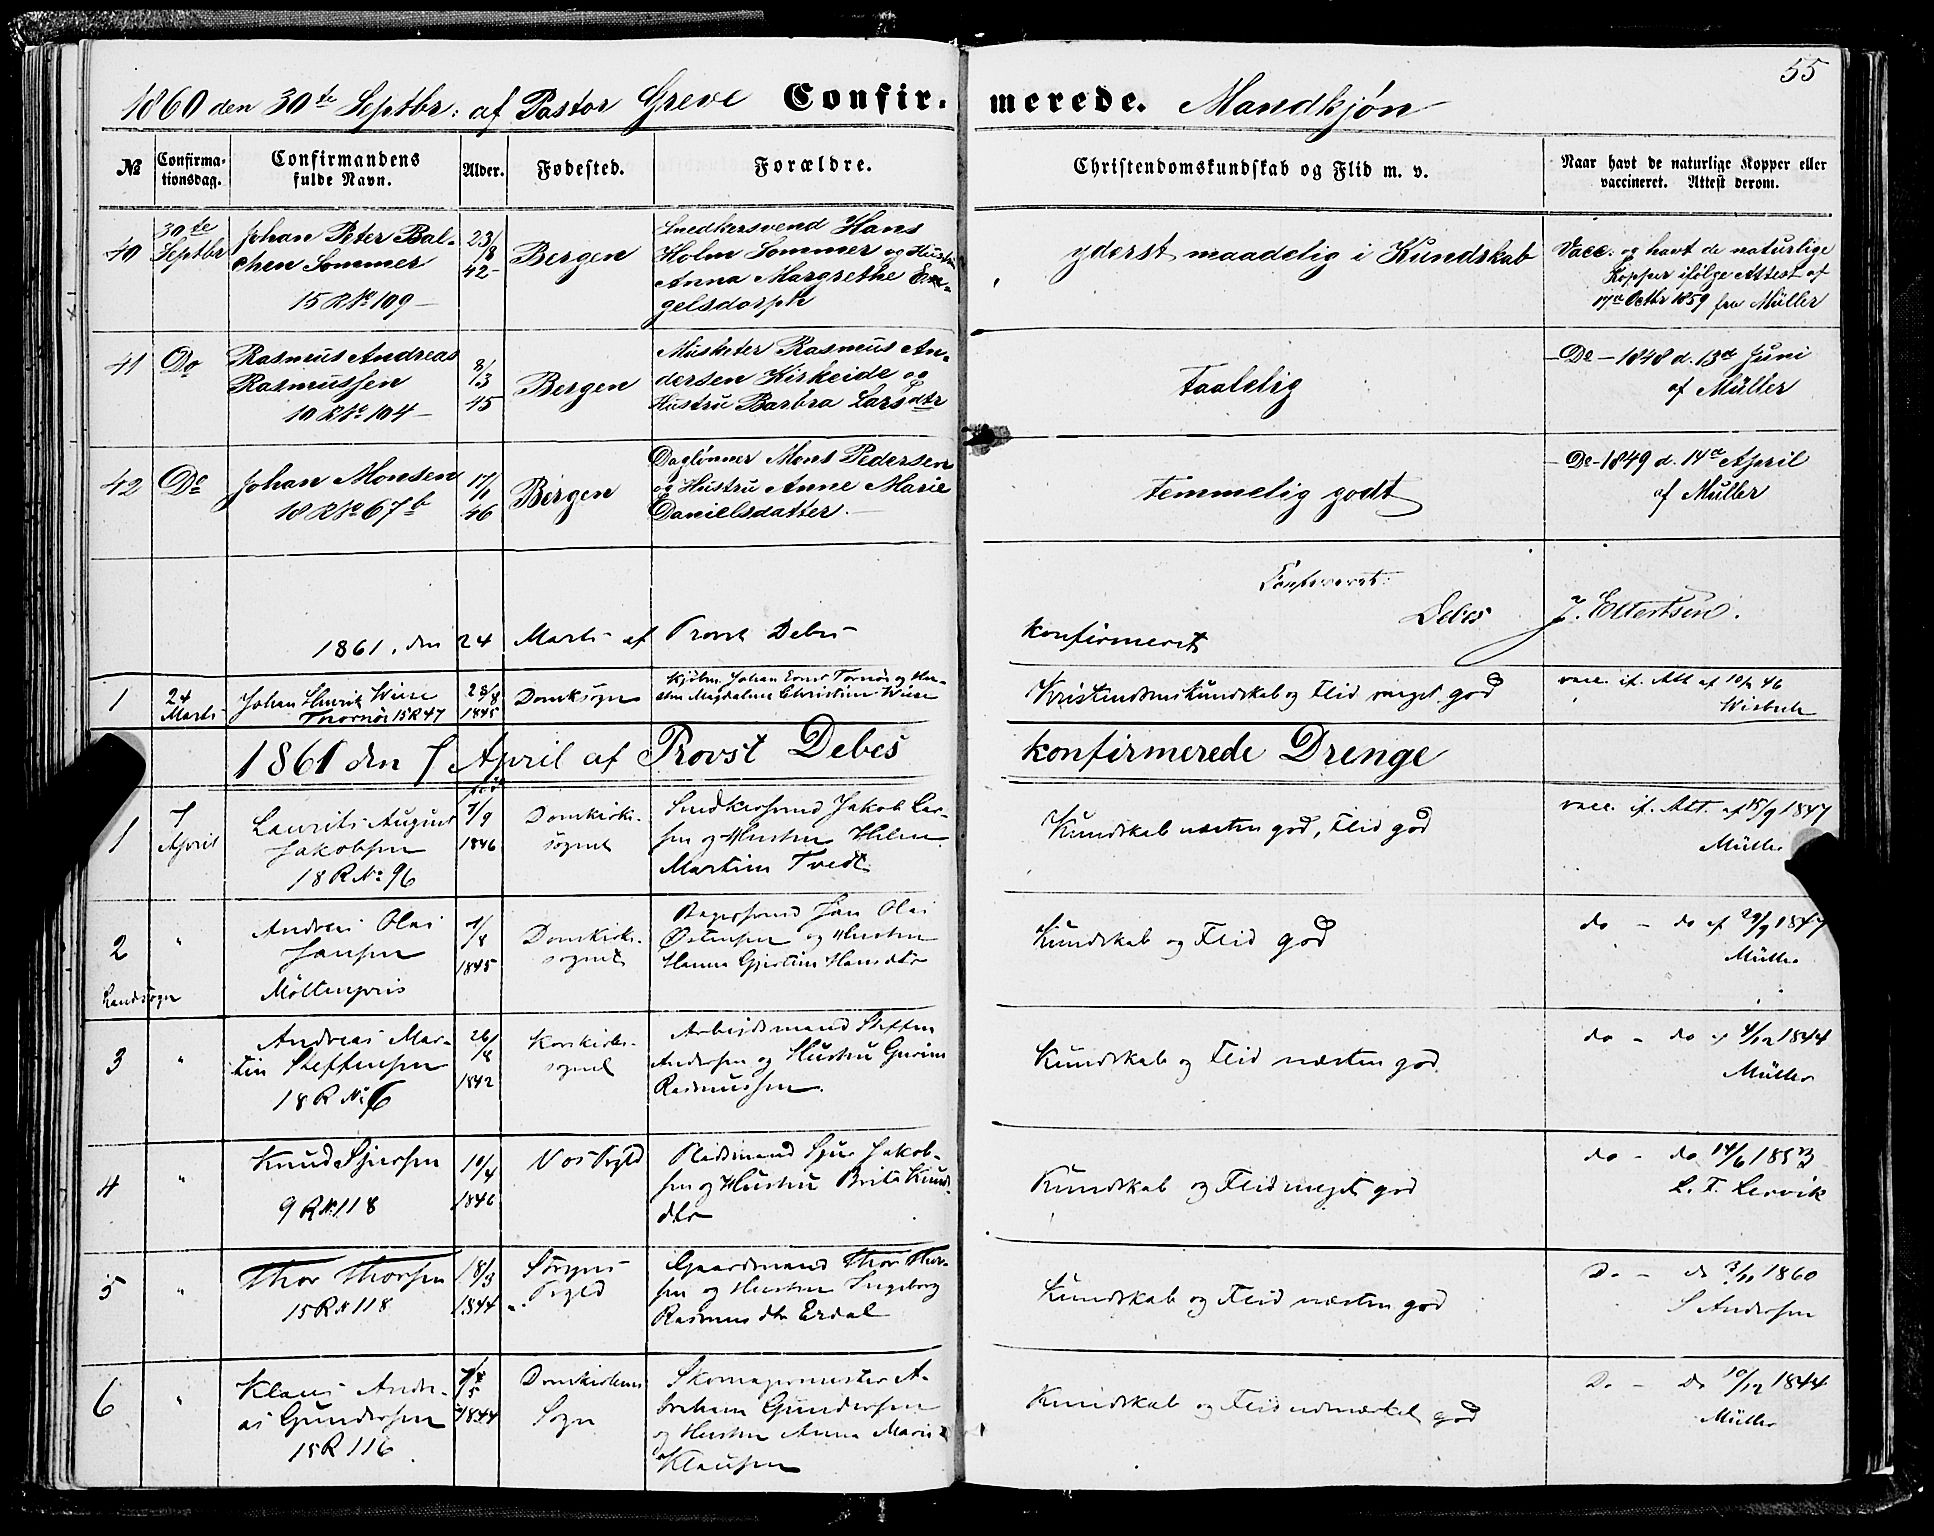 55
1860 den 30te Septbr: af Pastor Greve Confir- merede. Mandkjøn
№ Confirma-
tionsdag. Confirmandens
fulde Navn. Alder. Fødested. Forældre. Christendomskundskab og Flid m. v. Naar havt de naturlige Kopper eller
vaccineret. Attest derom.
40 30te
Septbr Johan Peter Bal-
chen Sommer
15 R № 109 23/8
42 Bergen Snedkersvend Hans
Holm Sommer og Hustru
Anna Margrethe En-
gelsdorph yderst maadelig i Kundskab Vacc: og havt de naturlige
Kopper ifølge Attest af
Octbr 1859 fra Müller
41 Do Rasmus Andreas
Rasmussen
10 R № 104 8/3
45 Bergen Musketer Rasmus An-
dersen Kirkeide og
Hustru Barbra Larsdtr Taalelig Do - 1848 d. 13de Juni
af Müller
42 Do Johan Monsen
18 R № 67b 17/1
46 Bergen Daglønner Mons Pedersen
og Hustru Anne Marie
Danielsdatter. Temmelig godt Do - 1849 d. 14de April
af Müller
Konfereret:
Debes J. Ellertsen.
1861, den 24 Marts af Provst Debes konfirmeret
1 24
Marts Johan Henrik Wiese
Thornöe 15 R 47 28/8
1845 Domksogn Kjøbm. Johan Ernst Tornöe og Hu-
stru Magdalena Christine Wiese Kristendomskundskab og Flid meget god vacc. if. Att af 10/7 46
Wisbech
1861 den 7 April af Provst Debes konfirmerede Drenge
1 7
April Laurits August
Jakobsen
18 R № 96 7/9
1846 Domkirke-
sognet Snedkersvend Jakob Lar-
sen og Hustru Helene
Martine Tvedt Kundskab næsten god, Flid god vacc. if. Att. af 15/9 1847
Müller
2 " Andreas Olai
Jansen
Möllenpris
Landsogn 1/8
1845 Domkirke-
sognet Bagersvend Jan Olai
Østensen og Hustru
Hanna Gjertine Hansdtr Kundskab og Flid god do - do af 29/9 1847
Müller
3 " Andreas Mar-
tin Steffensen
18 R № 6 26/8
1842 Korskirke-
sognet Arbejdsmand Steffen
Andersen og Hustru Gurine
Rasmussen Kundskab og Flid næsten god. do - do af 4/12 1844
Müller
4 " Knud Sjursen
9 R № 118 10/4
1846 Vos Prgld Pladsmand Sjur Jakob-
sen og Hustru Brita Knuds-
dtr Kundskab og Flid meget god do - do 14/6 1853
L. T. Lervik
5 " Thor Thorsen
15 R № 118 18/3
1844 Strgns
Prgld Gaardmand Thor Thor-
sen og Hustru Ingeborg
Rasmusdtr Erdal Kundskab og Flid næsten god Do - do 3/11 1860
S Andersen
6 " Klaus Andre-
as Gundersen
15 R 116 5
1844 Domkirkens
Sogn Skomagermester A-
braham Gundersen
og Hustru Anna Marie
Klausen Kundskab og Flid udmærket god Do - Do 10/12 1844
Müller